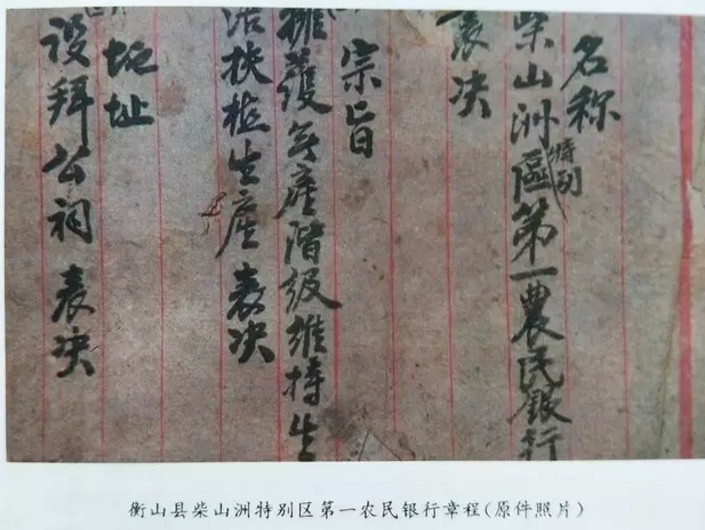 名称
柴山洲特别區第一農民银行
表决
宗旨
擁護无産階级维持生
活扶植生産表决
地址
设拜公祠表决
衡山县柴山洲特别区第一农民银行章程(原件照片)